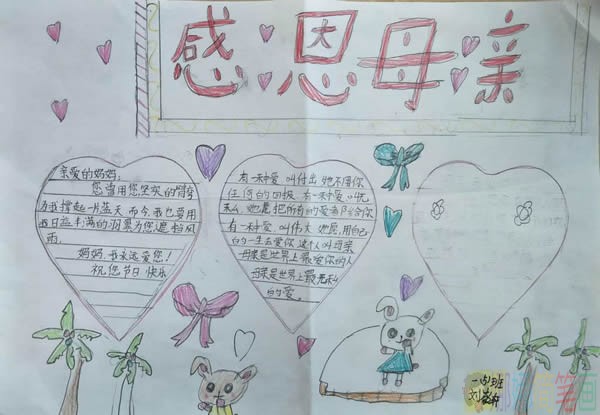 感恩母亲
亲爱的妈妈:
您曾用您坚实的臂弯
为我撑起一片蓝天 而今,我也要用
我日益丰满的羽翼为您遮挡风
雨。
妈妈,我永远爱您!
祝您节日快乐
有一种爱 叫付出 她不求你
任何的回报 有一种爱 叫无
私 她是把所有的爱都给你
有一种爱 叫伟大 她是用自己
的一生去爱你 这个人叫母亲
母亲是世界上最爱你的人
母亲是世界上最无私
的爱。
班
刘